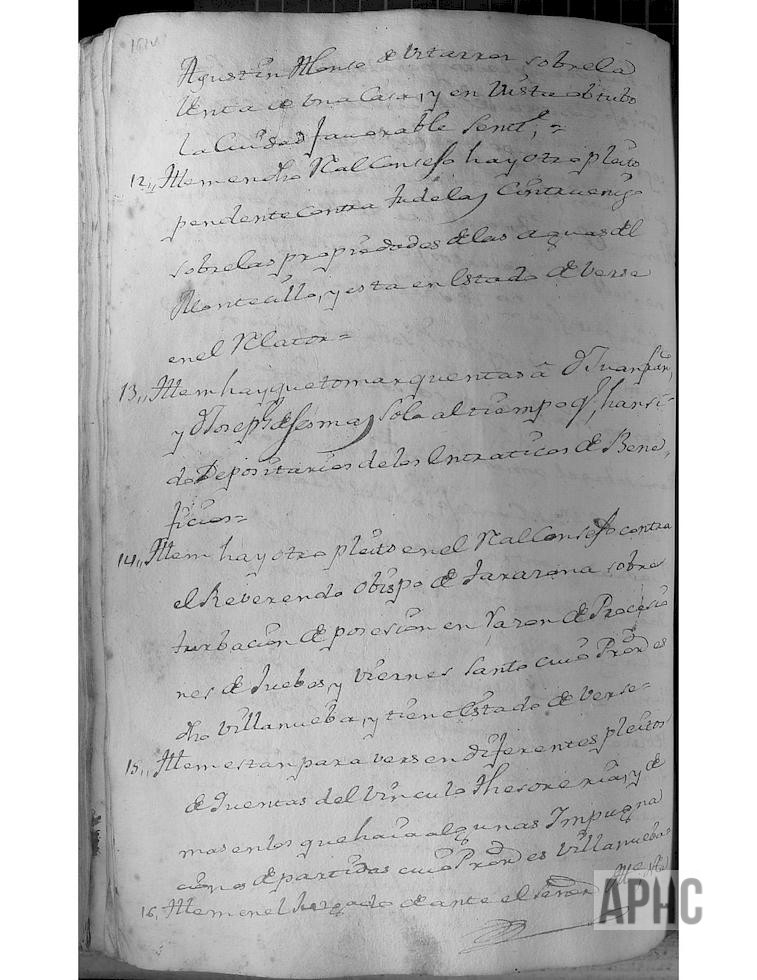 Agustin Alonso de Vitarror sobre la
Venta de Una Casa, y en Vista obtubo
la Ciudad favorable Sentª, =
12,, Ittem en dho Rl Consejo hay otro pleito
pendente contra Tudela, y Cintruenigo
sobre las propriedades de las aguas del
Montecillo, y esta en Estado de Verse
en el Relator =
13,, Ittem hay que tomar quentas a Dn Juan
y Dn Joseph de Sesma, y Solo al tiempo q han si-
do Depositarios de los Entraticos de Bene-
ficios =
14,, Ittem hay otro pleito en el Rl Consejo contra
el Reverendo Obispo de Tarazona sobre
turbacion de posesion en razon de Procesio
nes de Juebes, y Viernes Santo cuio Pror es
dho Villanueba, y tiene Estado de Verse =
15,, Ittem estan para verse en diferentes pleitos
de quentas del Vinculo Thesoreria, y de
mas en los que hacia algunas Impugna
ciones de partidas cuio Pror es Villanueba =
16,, Ittem en el Juzgado de ante el Señor
APHC